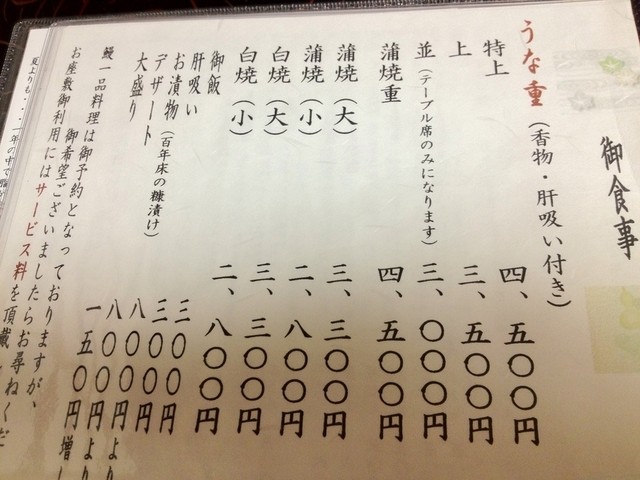 御食事
うな重（香物・肝吸い付き）
特上 四、五〇〇円
上 三、五〇〇円
並（テーブル席のみになります） 三、〇〇〇円
蒲焼重 四、五〇〇円
蒲焼（大） 三、三〇〇円
蒲焼（小） 二、八〇〇円
白焼（大） 三、三〇〇円
白焼（小） 二、八〇〇円
御飯 三〇〇円
肝吸い 三〇〇円
お漬物（百年床の糠漬け） 八〇〇円より
デザート 八〇〇円より
大盛り 一五〇円増し
鰻一品料理は御予約となっておりますが、
御希望ございましたらお尋ねくだ
お座敷御利用にはサービス料を頂戴
夏よりも・・・一年の中で